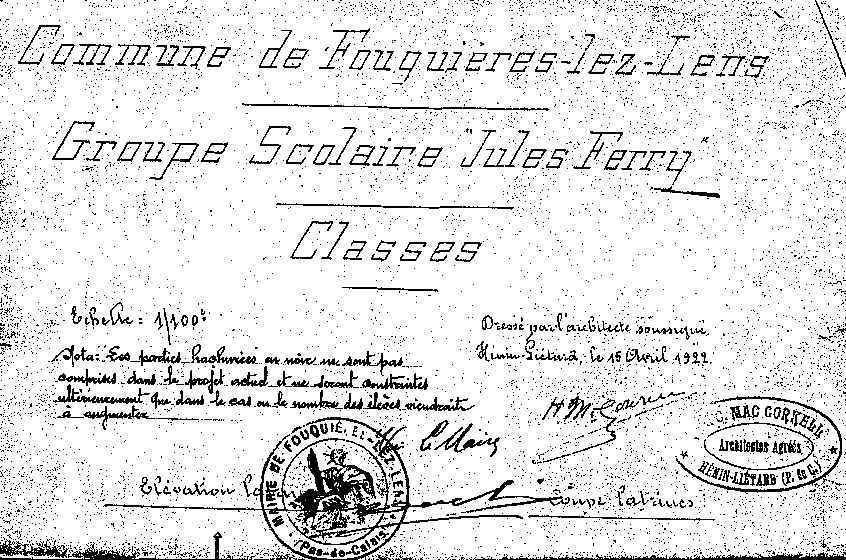 Commune de Fouquières-lez-Lens
Groupe Scolaire "Jules Ferry"
Classes
Echelle: 1/100e
Dressé par l'architecte soussigné,
Hénin-Liétard, le 15 Avril 1922.
Nota: Les parties hachurées au noir ne sont pas
comprises dans le projet actuel et ne seront construites
ultérieurement que dans le cas ou le nombre des élèves viendrait
à augmenter
Le Maire
MAC CORKELL
Architectes Agréés
HÉNIN-LIÉTARD (P. de C.)
MAIRIE DE FOUQUIÈRES-LEZ-LENS
(Pas-de-Calais)
Elévation
Coupe latrines